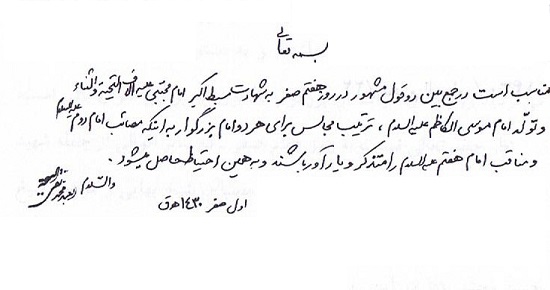 بسمه تعالی
مناسب است در جمع بین دو قول مشهور در روز هفتم صفر به شهادت سبط اکبر امام مجتبی علیه آلاف التحیة والثناء
و تولّد امام موسی الکاظم علیه السلام ، ترتیب مجالس برای هر دو امام بزرگوار به اینکه مصائب امام دوم علیه السلام
و مناقب امام هفتم علیه السلام را متذکر و یادآور باشند و به همین احتیاط حاصل میشود .
والسلام العبد محمد تقی
اول صفر ۱۴۳۰ هـ ق